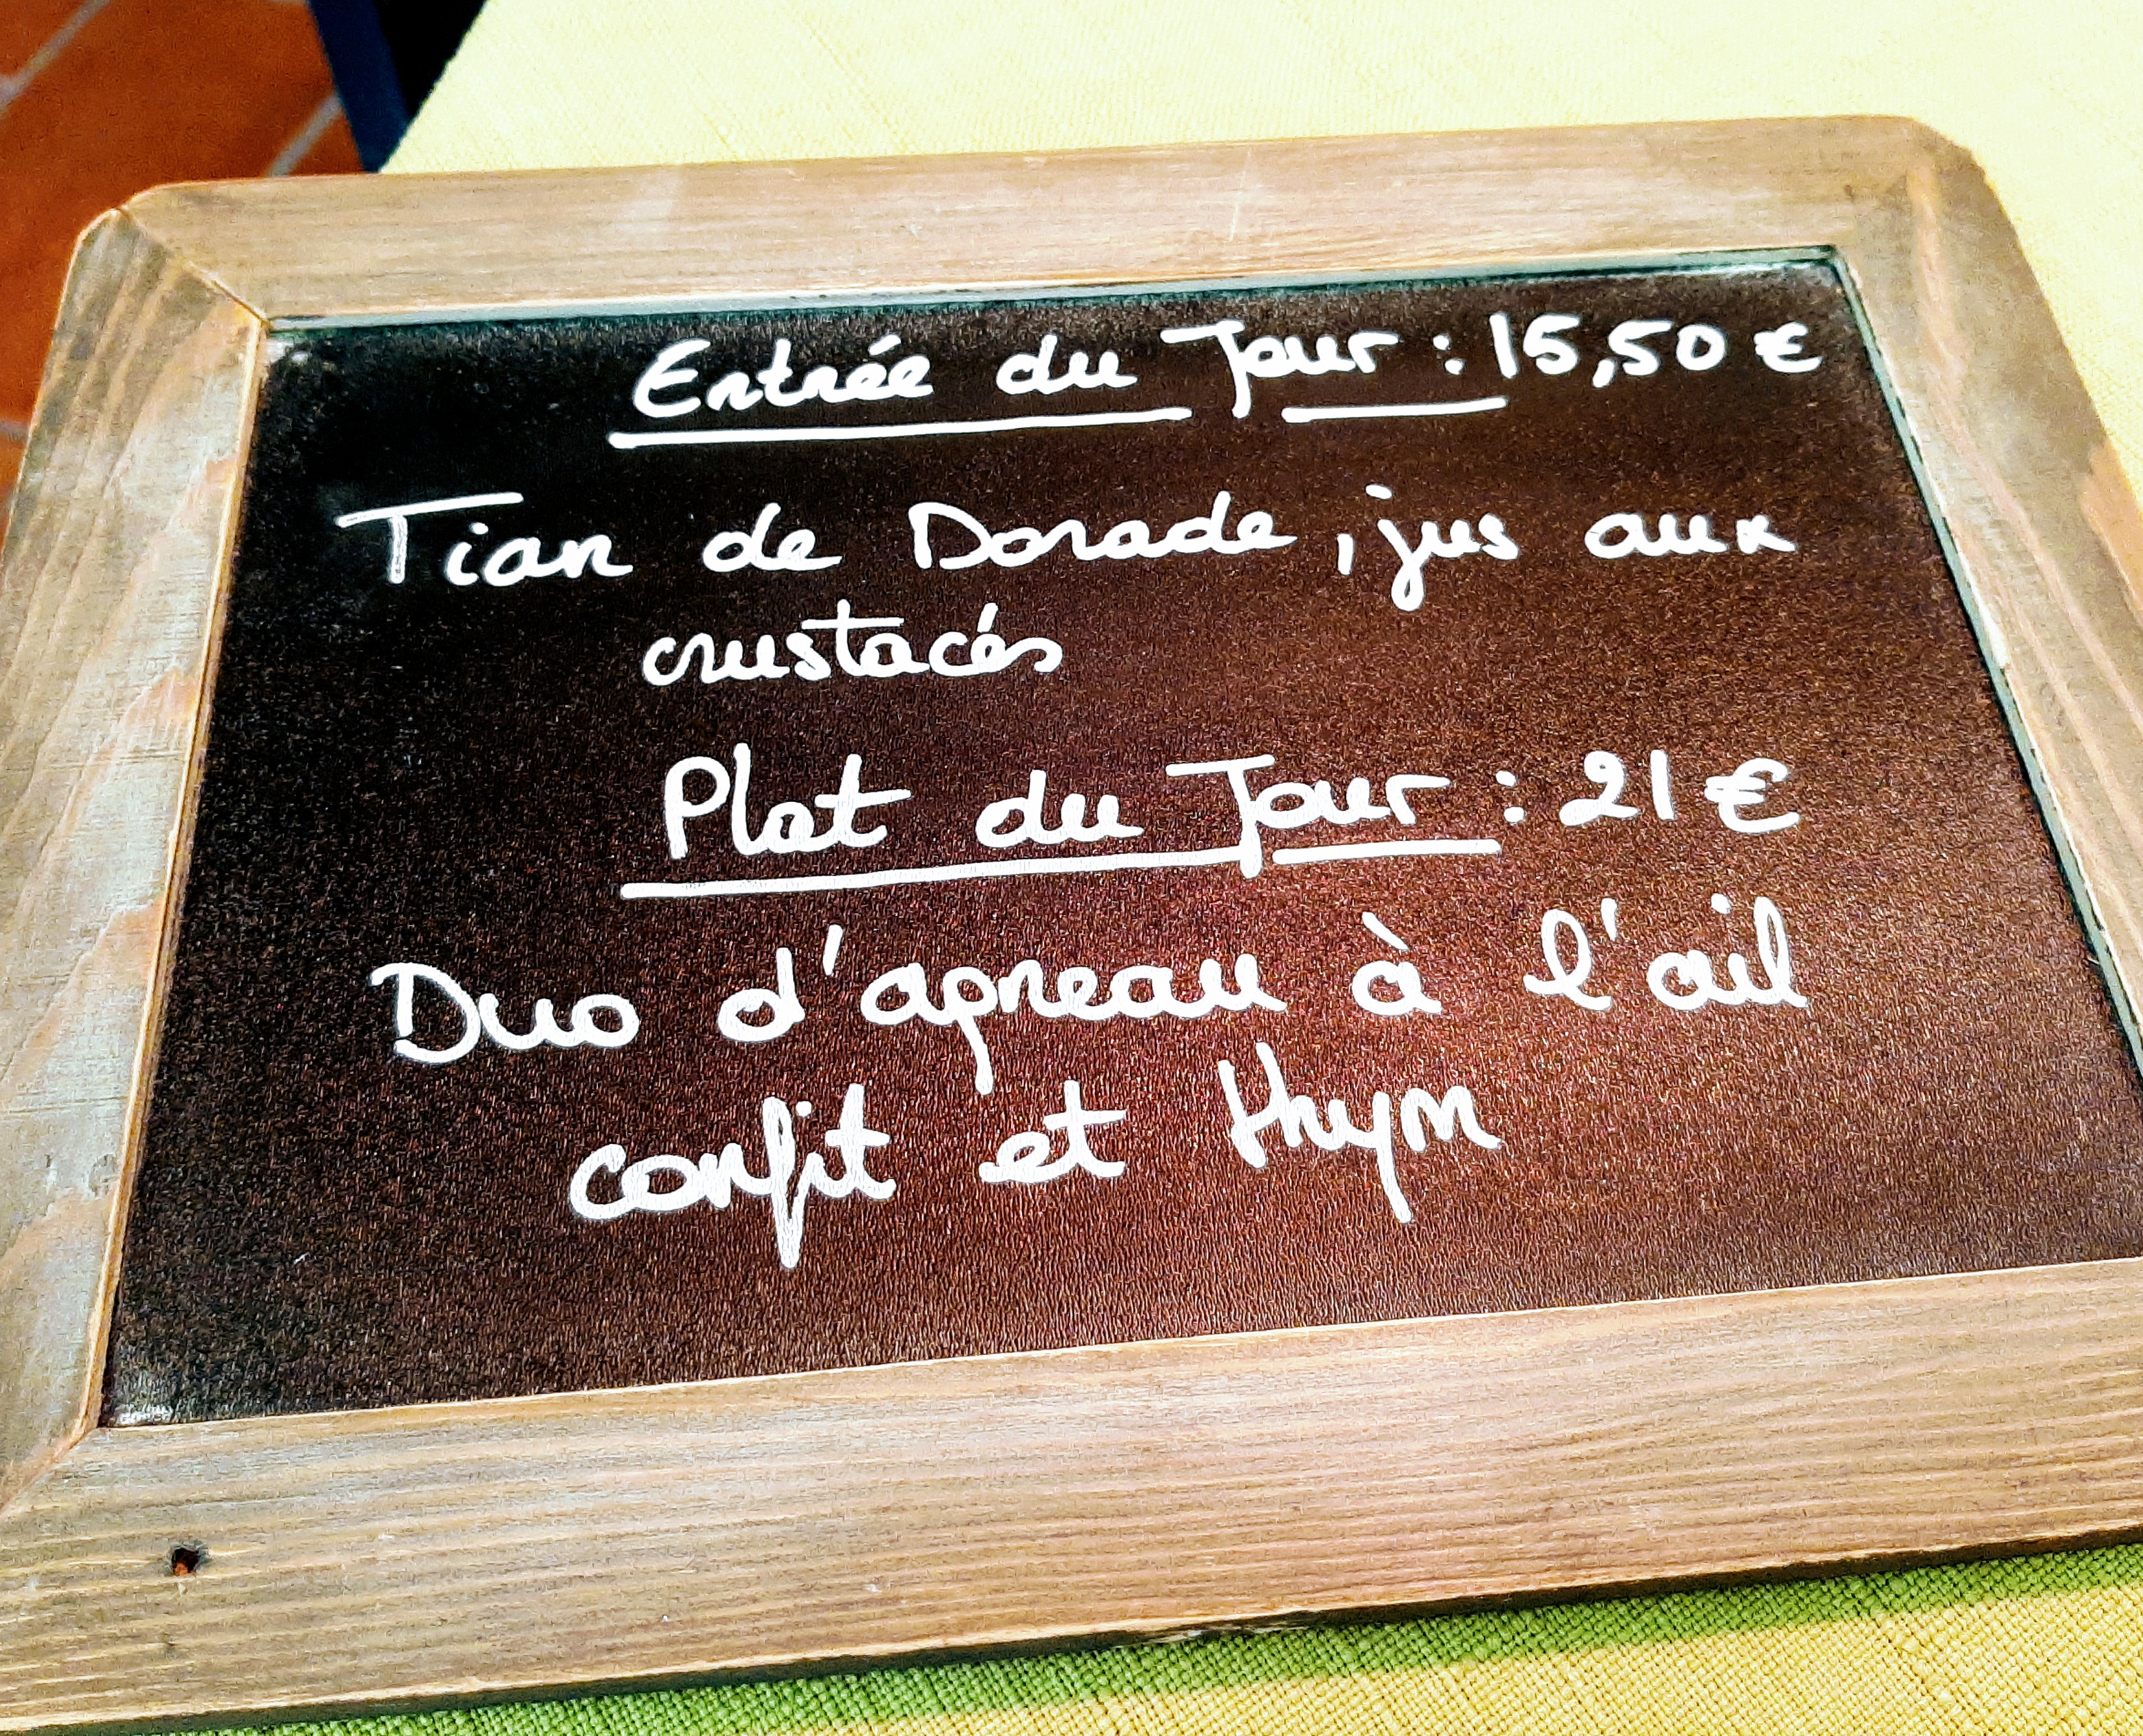 Entrée du Jour : 15,50 €
Tian de Dorade, jus aux
crustacés
Plat du Jour : 21 €
Duo d'agneau à l'ail
confit et thym